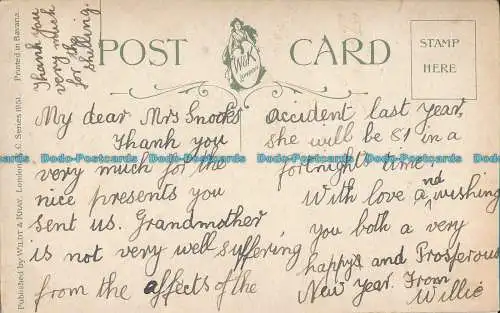 Thank you
very much
for the
shilling.
POST CARD
W&K
London
STAMP
HERE
Published by WILDT & KRAY, London, E.C. Series 1951. Printed in Bavaria.
My dear Mrs Snooks
Thank you
very much for the
nice presents you
sent us. Grandmother
is not very well suffering
from the affects of the
accident last year,
she will be 81 in a
fortnights time.
With love and wishing
you both a very
happy and Prosferous
New Year. From
Willie
Dodo-Postcards Dodo-Postcards Dodo-Postcards Dodo-Postcards